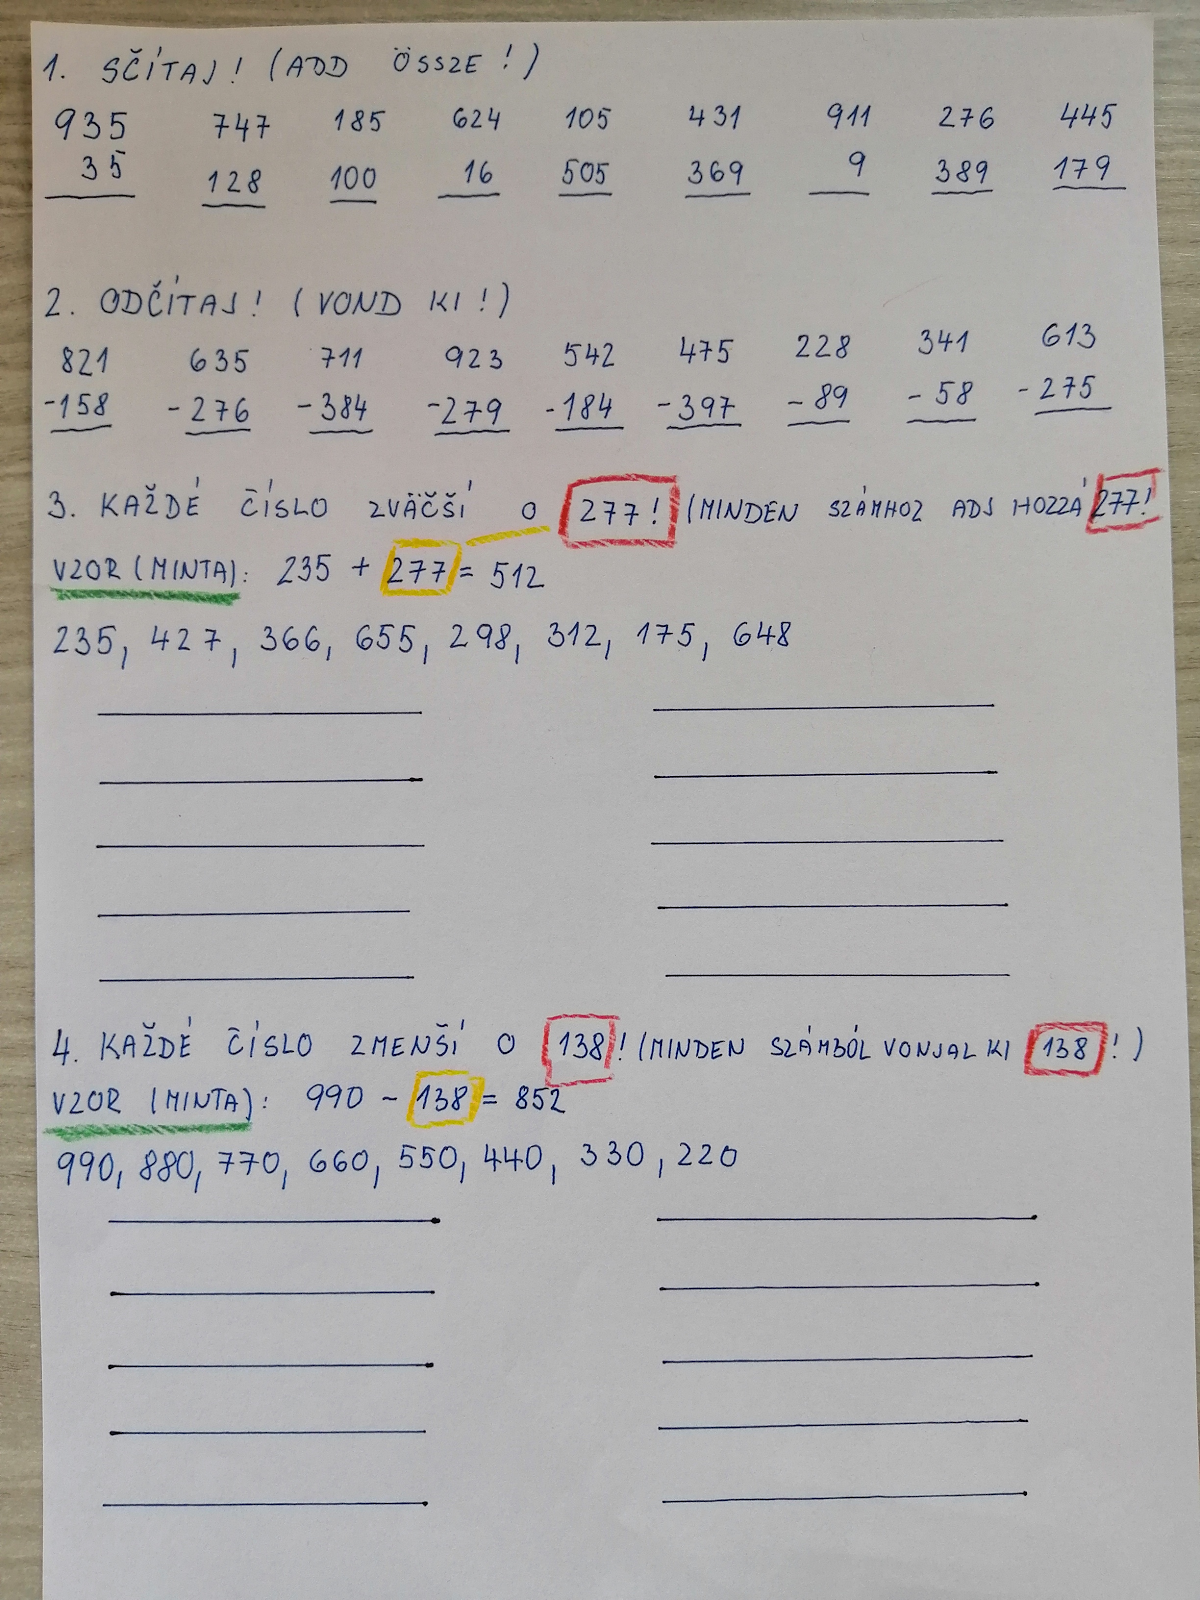 1. SČÍTAJ! (ADD ÖSSZE!)
935 747 185 624 105 431 911 276 445
35 128 100 16 505 369 9 389 179
2. ODČÍTAJ! (VOND KI!)
821 635 711 923 542 475 228 341 613
-158 -276 -384 -279 -184 -397 -89 -58 -275
3. KAŽDÉ ČÍSLO ZVÄČŠÍ O 277! (MINDEN SZÁMHOZ ADJ HOZZÁ 277!
VZOR (MINTA): 235 + 277 = 512
235, 427, 366, 655, 298, 312, 175, 648
4. KAŽDÉ ČÍSLO ZMENŠÍ O 138! (MINDEN SZÁMBÓL VONJAL KI 138!)
VZOR (MINTA): 990 - 138 = 852
990, 880, 770, 660, 550, 440, 330, 220